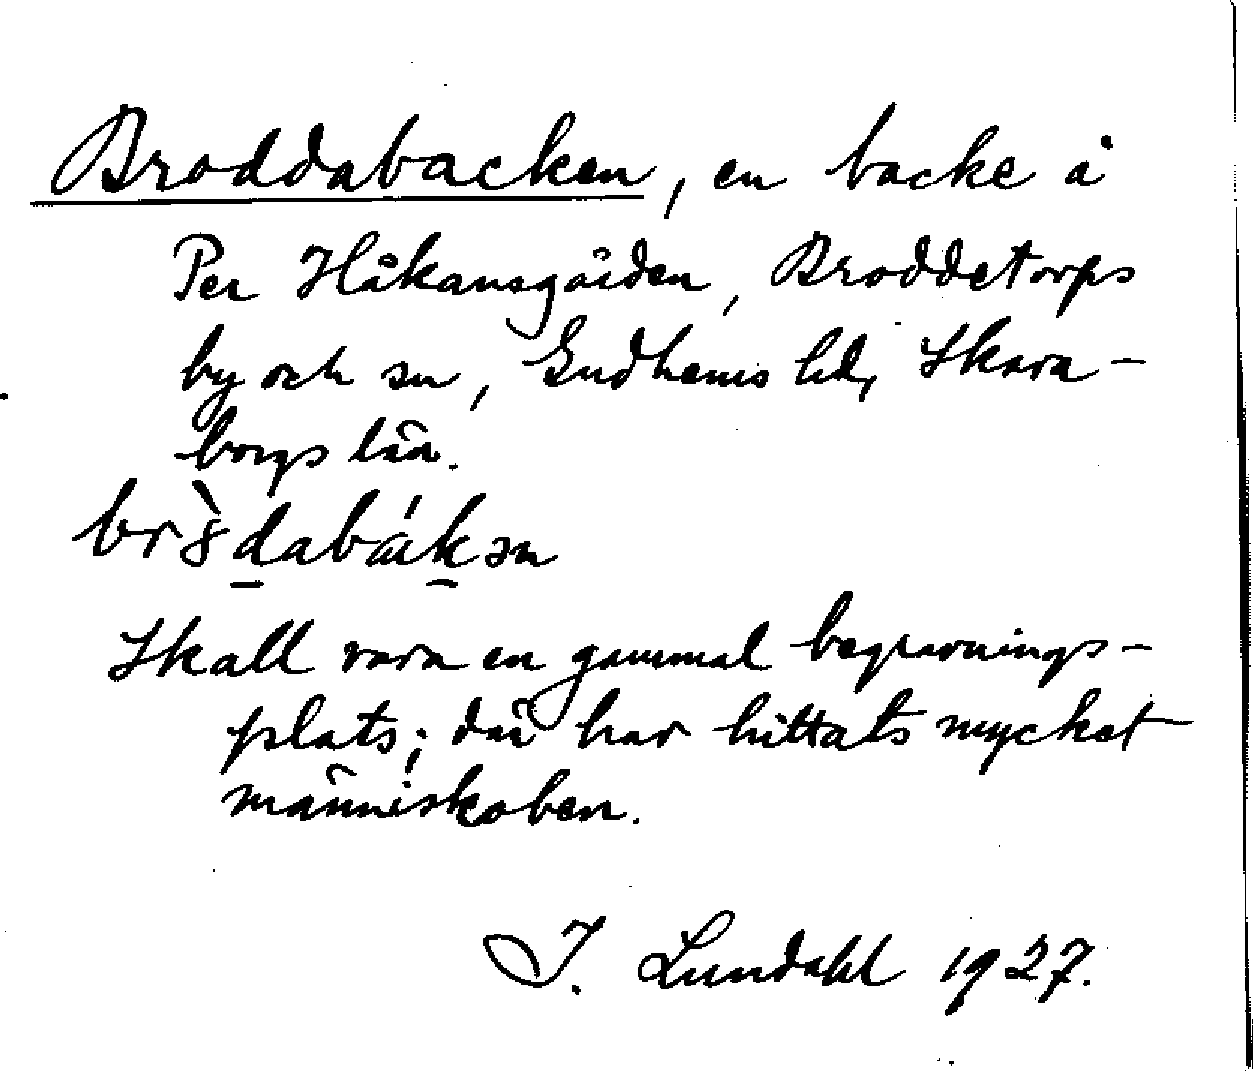 Broddabacken, en backe å
Per Håkansgården, Broddetorps
by och sn, Gudhems hd, Skara-
borgs län.
Skall vara en gammal begravnings-
plats; där har hittats mycket
människoben.
I. Lundahl 1927.